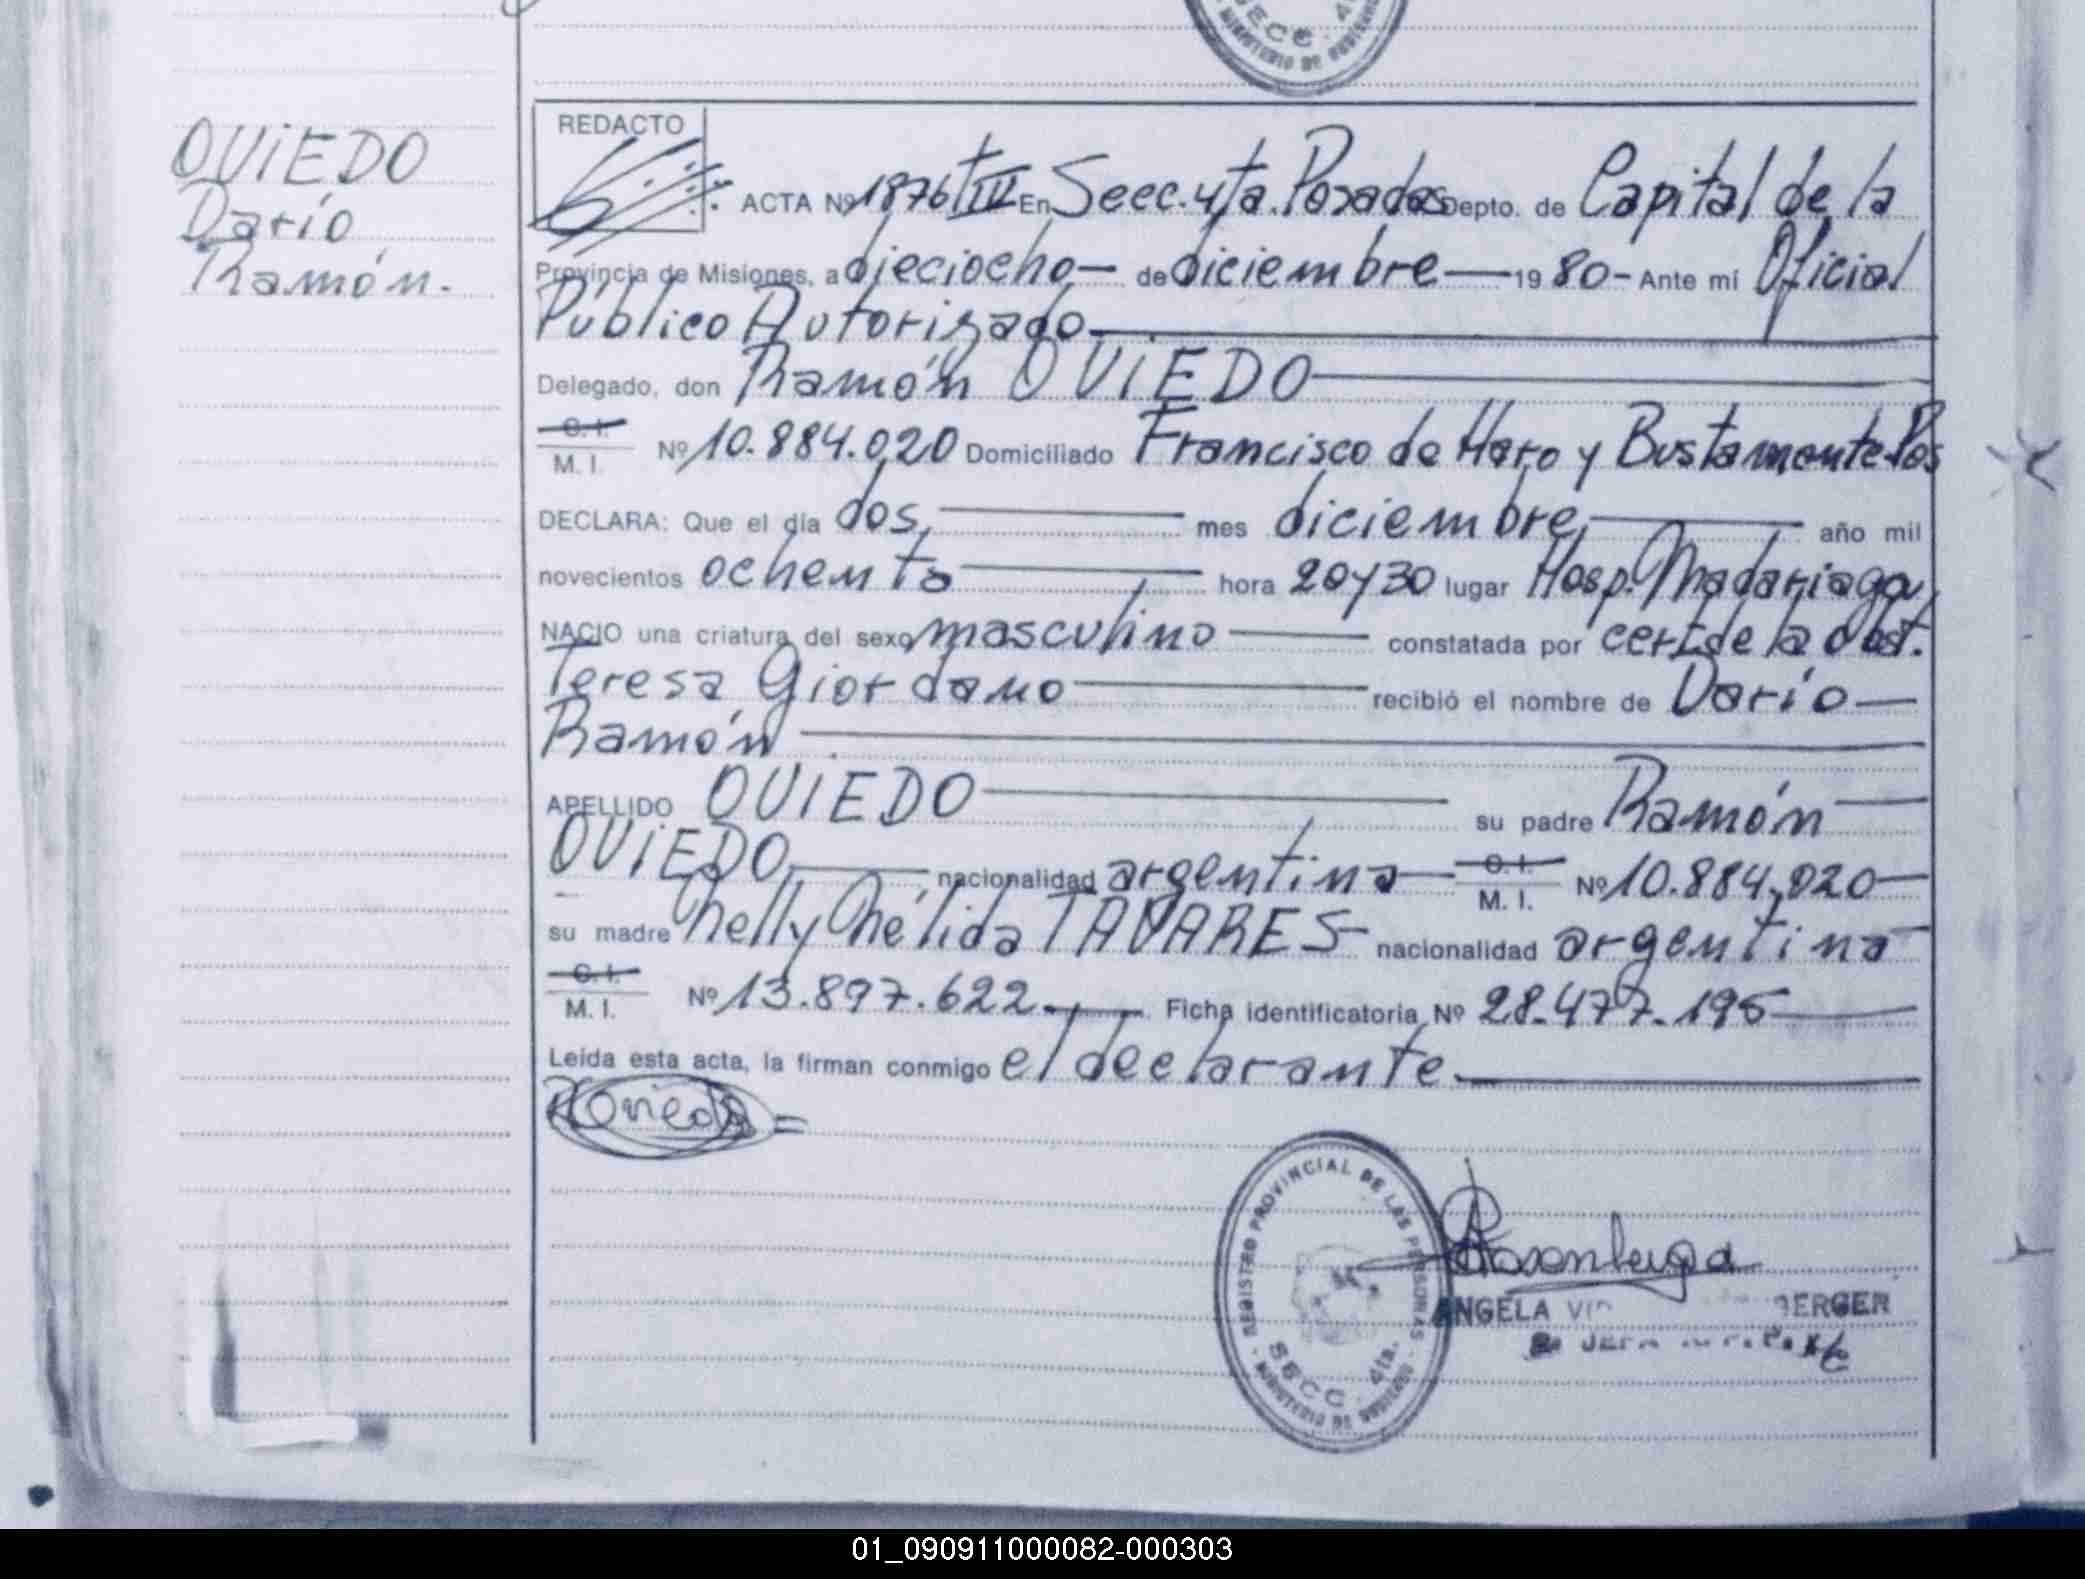 SECC. 4
MINISTERIO DE GOBIERNO
OVIEDO
Darío
Ramón.
REDACTO
ACTA Nº 1876 T IV En Secc. 4ta. Posadas Depto. de Capital de la
Provincia de Misiones, a dieciocho — de diciembre — 19 80 - Ante mí Oficial
Público Autorizado
Delegado, don Ramón OVIEDO
C. I.
M. I. Nº 10.884.020 Domiciliado Francisco de Haro y Bustamente Pos
DECLARA: Que el día dos, mes diciembre, año mil
novecientos ochenta hora 20y30 lugar Hosp. Madariaga,
NACIO una criatura del sexo masculino constatada por cert. de la obst.
Teresa Giordano recibió el nombre de Darío
Ramón
APELLIDO OVIEDO su padre Ramón
OVIEDO nacionalidad argentina C. I. M. I. Nº 10.884.020
su madre Nelly Nélida TAVARES nacionalidad argentina
C. I.
M. I. Nº 13.897.622 Ficha identificatoria Nº 28.477.195
Leída esta acta, la firman conmigo el declarante.
Oviedo
REGISTRO PROVINCIAL DE LAS PERSONAS
SECC. 4ta.
MINISTERIO DE GOBIERNO
ANGELA BERGER
01_090911000082-000303